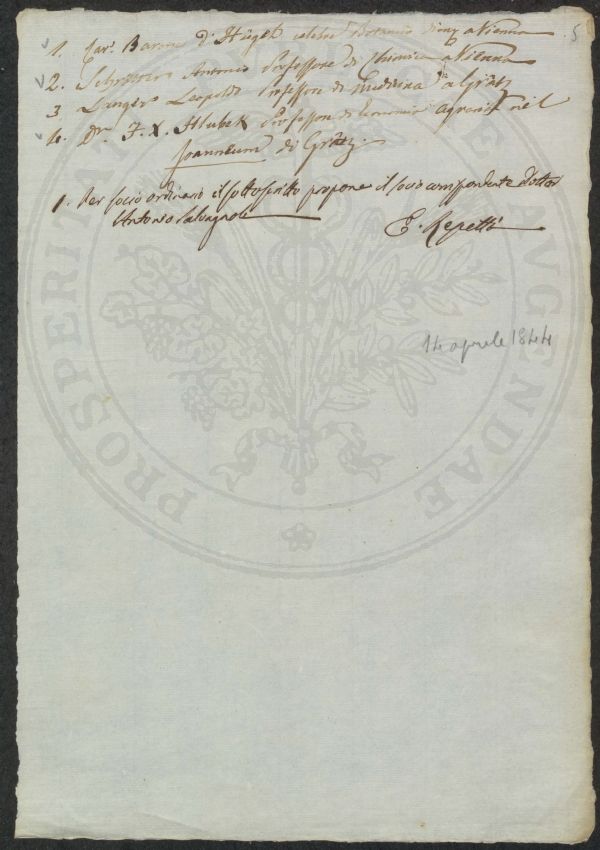 5
1. Cav. Barone d'Hügel celebre Botanico a Vienna
2. Schrötter Antonio Professore di Chimica a Vienna
3 Langer Leopoldo Professore di Medicina a Grätz
4. Dr. F. X. Hlubek Professore di Economia Agraria nel
Joanneum di Grätz.
1. Per socio ordinario il sottoscritto propone il socio corrispondente dottor
Antonio Salvagnoli
E. Repetti
14 aprile 1844
PROSPERITATI PUBLICAE AUGENDAE